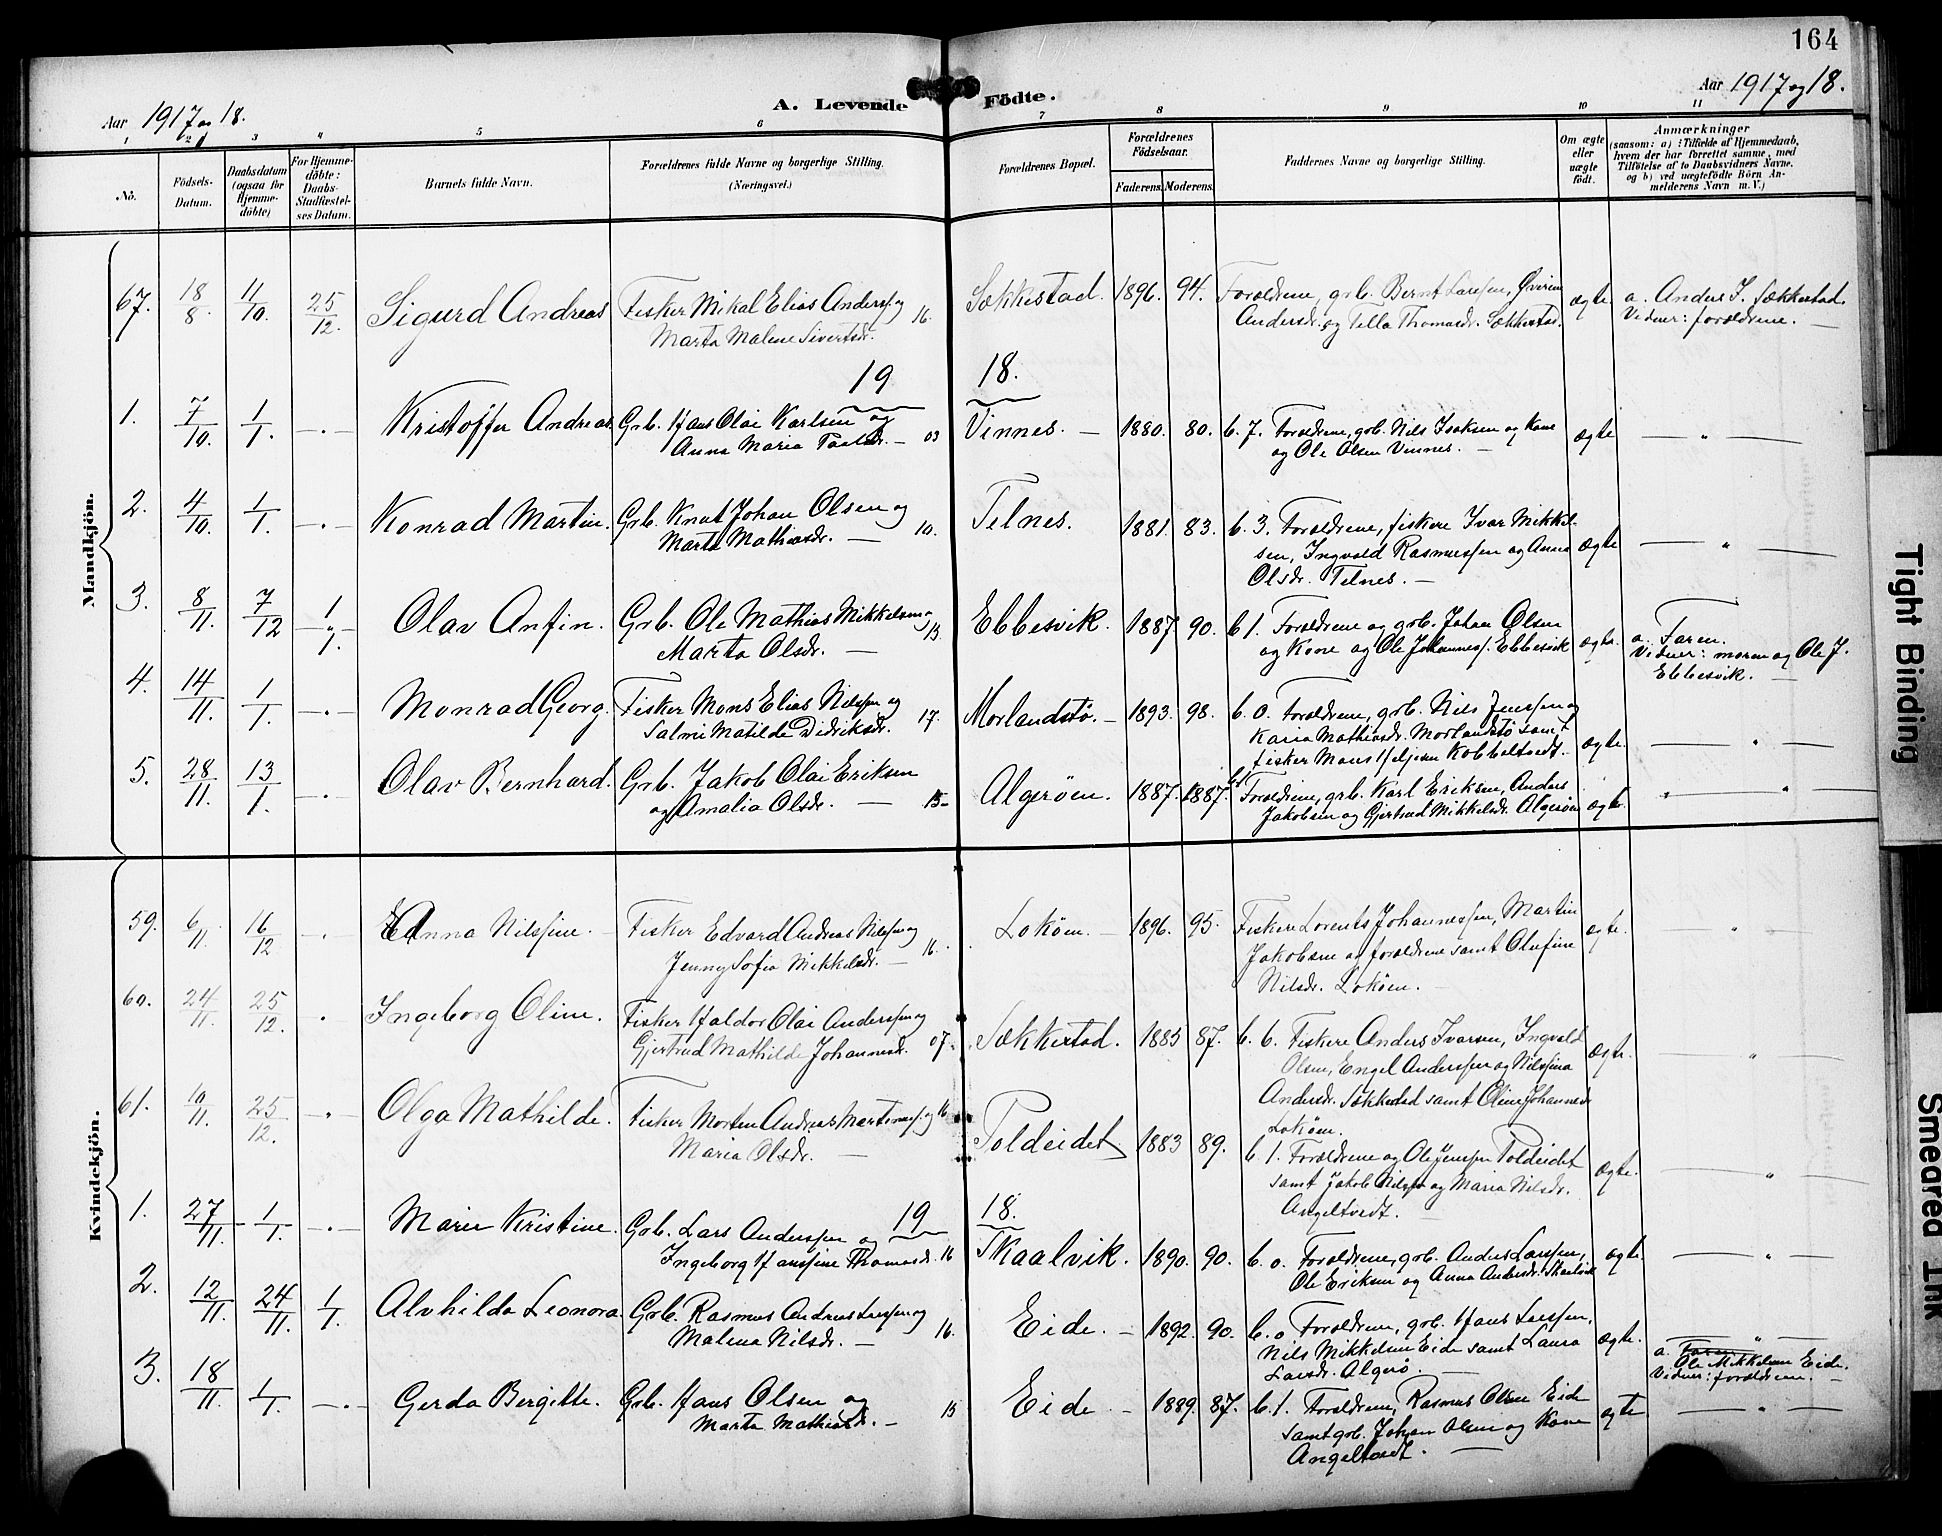 164
Aar 1917 og 18.
A. Levende Födte.
Aar 1917 og 18.
1 2 3 4 5 6 7 8 9 10 11
No.
Födsels-Datum.
Daabsdatum (ogsaa for Hjemme-döbte)
For Hjemme-döbte: Daabs-Stadfæstel-ses Datum.
Barnets fulde Navn.
Forældrenes fulde Navne og borgerlige Stilling. (Næringsvei.)
Forældrenes Bopæl.
Forældrenes Födselsaar.
Faderens. Moderens.
Faddernes Navne og borgerlige Stilling.
Om ægte eller uægte födt.
Anmærkninger
(saasom: a) i Tilfælde af Hjemmedaab, hvem der har forrettet samme, med Tilföielse af to Daabsvidners Navne, og b) ved uægtefödte Börn An-melderens Navn m. V.)
Mandkjön.
67. 18/8 11/10. 25/12. Sigurd Andreas Fisker Mikal Elias Anderss. og 16. Sækkestad. 1896. 94. Forældrene, grb. Bernt Larssen, ægte a. Anders I. Sækkestad.
Marta Malene Sivertsdr. Andersdr. og Tella Thomasdr. Sækkestad. Vidner: forældrene. —
19 18.
1. 7/10. 1/1. —.— Kristoffer Andreas Grb. Hans Olai Karlsen og 03 Vinnes. — 1880. 80. b. 7. Forældrene, grb. Nils Isaksen og Kone ægte — " —
Anna Maria — og Ole Olsen Vinnes. —
2. 4/10. 1/1. —.— Konrad Martin. Grb. Knut Johan Olsen og 10. Telnes. 1881. 83. b. 3. Forældrene, fiskere Ivar Mikkel- ægte — " —
Marta Mathiasdr. — sen, Ingvald Rasmussen og Anna
Olsdr. Telnes. —
3. 8/11. 7/12 1/1. Olav Anfin. Grb. Ole Mathias Mikkelsen og 13. Ebbesvik. 1887. 90. b 1. Forældrene og grb. Johan Olsen ægte. a. Faren.
Marta Olsdr. — og Kone og Ole Johanness. Ebbesvik Vidner: moren og Ole J.
Ebbesvik. —
4. 14/11. 1/1. —.— Monrad Georg. Fisker Mons Elias Nilssen og 17. Morlandstø. — 1893. 98. b. 0. Forældrene, grb. Nils Jenssen og ægte. — " —
Salmi Matilde Didriksdr. Karia Mathiasdr. Morlandstø samt
fisker Mons Heljesen Kobbeltvedt. —
5. 28/11. 13/1. —.— Olav Bernhard. Grb. Jakob Olai Eriksen 15. Algerøen. 1887. 1887. b1 Forældrene, grb. Karl Eriksen, Anders ægte. " "
og Amalia Olsdr. — Jakobsen og Gjertrud Mikkelsdr. Algerøen
Kvindekjön.
59. 6/11. 16/12 —.— Anna Nilssine. — Fisker Edvard Andreas Nilssen og 16. Lokøen. — 1896. 95. Fiskere Lorents Johannessen, Martin ægte. "
Jenny Sofia Mikkelsdr. — Jakobsen og forældrene samt Olufine
Nilsdr. Lokøen. —
60. 24/11. 25/12. . Ingeborg Oline. Fisker Haldor Olai Anderssen og 07. Sækkestad. 1885 87. b. 6. Fiskere Anders Ivarsen, Ingvald ægte. — " —
Gjertrud Mathilde Johannesdr. Olsen, Engel Anderssen og Nilssina
Andersdr. Sækkestad samt Oline Johannesdr.
Lokøen.
61. 10/11. 25/12. —.— Olga Mathilde. Fisker Morten Andreas Martinuss. og 16 Toldeidet 1883 89. b 1. Forældrene og Ole Jenssen Toldeidet ægte. — " —
Maria Olsdr. — samt Jakob Nilssen og Maria Nilsdr.
Angeltvedt. —
19 18.
1. 27/11. 1/1. —.— Marie Kristine. Grb. Lars Anderssen og 16 Skaalvik. 1890. 90. b. 0. Forældrene, grb. Anders Larssen, ægte. — " —
Ingeborg Hanssine Thomasdr. Ole Eriksen og Anna Andersdr. Skaalvik
2. 12/11. 24/11. 1/1. Alvhilda Leonora. Grb. Rasmus Andreas Larssen og 16. Eide. — 1892. 90. b. 0 Forældrene, grb. Hans Larssen, ægte. — " —
Malena Nilsdr. — Nils Mikkelsen Eide samt Laura a. Faren
Larsdr. Algerø. — Ole Mikkelsen Eide.
Vidner: forældrene. —
3. 18/11. 1/1. —.— Gerda Bergitte. Grb. Hans Olsen og 15 Eide — 1889. 87. b. 1. Forældrene, Rasmus Olsen Eide ægte — " —
Marta Mathiasdr. — samt grb. Johan Olsen og Kone
Angeltvedt. —
Tight Binding
Smeared Ink